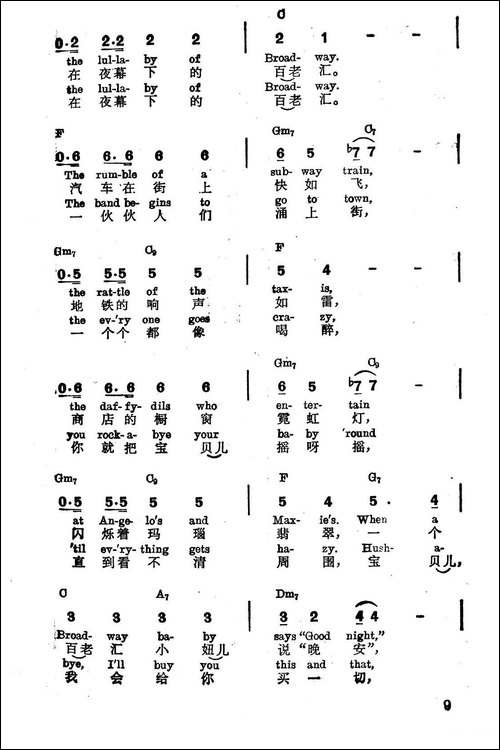 C
0·2 2·2 2 2 | 2 1 - - |
the lul-la- by of Broad- way.
在 夜幕 下 的 百老 汇。
the lul-la- by of Broad- way.
在 夜幕 下 的 百老 汇。
F Gm7 C7
0·6 6·6 6 6 | 6 5 ♭7 7 - |
The rum-ble of a sub- way train,
汽 车在 街 上 快 如 飞,
The band be- gins to go to town,
一 伙伙 人 们 涌 上 街,
Gm7 C9 F
0·5 5·5 5 5 | 5 4 - - |
the rat-tle of the tax- is,
地 铁的 响 声 如 雷,
the ev-'ry one goes cra- zy,
一 个个 都 像 喝 醉,
Gm7 C9
0·6 6·6 6 6 | 6 5 ♭7 7 - |
the daf-fy- dils who en- ter- tain
商 店的 橱 窗 霓 虹 灯,
you rock-a- bye your ba- by 'round
你 就把 宝 贝儿 摇 呀 摇,
Gm7 C9 F G7
0·5 5·5 5 5 | 5 4 5· 4 |
at An-ge- lo's and Max- ie's. When a
闪 烁着 玛 瑙 翡 翠, 一 个
'til ev-'ry-thing gets ha- zy. Hush- a-
直 到看 不 清 周 围, 宝 贝儿,
C A7 Dm7
3 3 3 3 | 3 2 4 4 - |
Broad- way ba- by says "Good night,"
百老 汇 小 妞儿 说 "晚 安",
bye, I'll buy you this and that,
我 会 给 你 买 一 切,
9